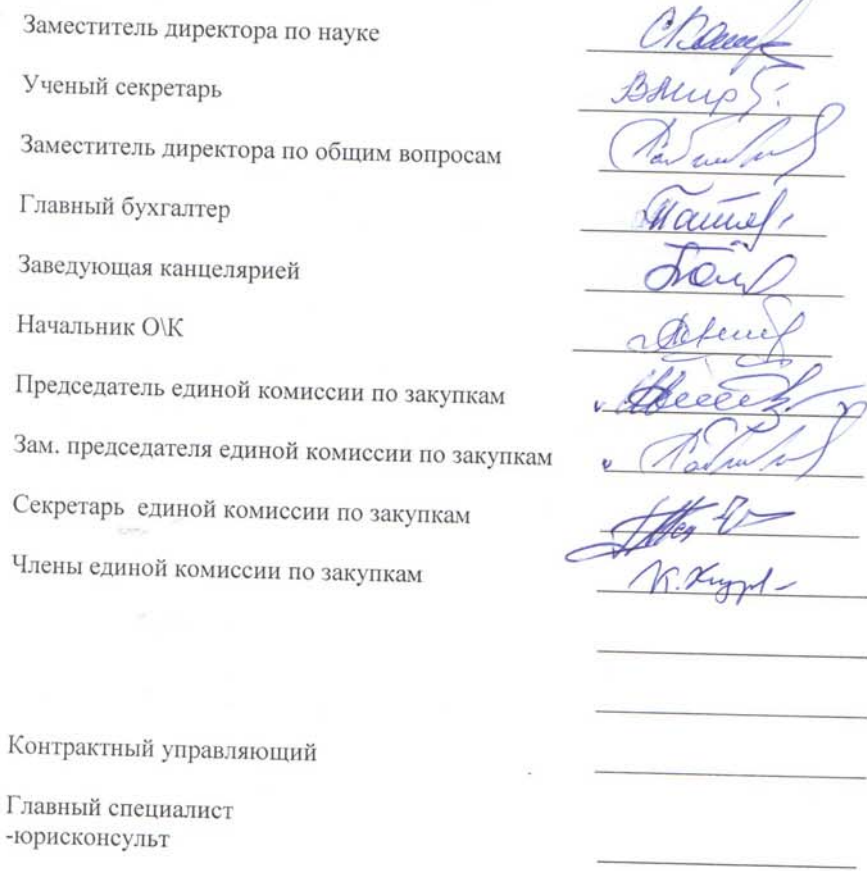 Заместитель директора по науке
Ученый секретарь
Заместитель директора по общим вопросам
Главный бухгалтер
Заведующая канцелярией
Начальник О\К
Председатель единой комиссии по закупкам
Зам. председателя единой комиссии по закупкам
Секретарь единой комиссии по закупкам
Члены единой комиссии по закупкам
Контрактный управляющий
Главный специалист
-юрисконсульт